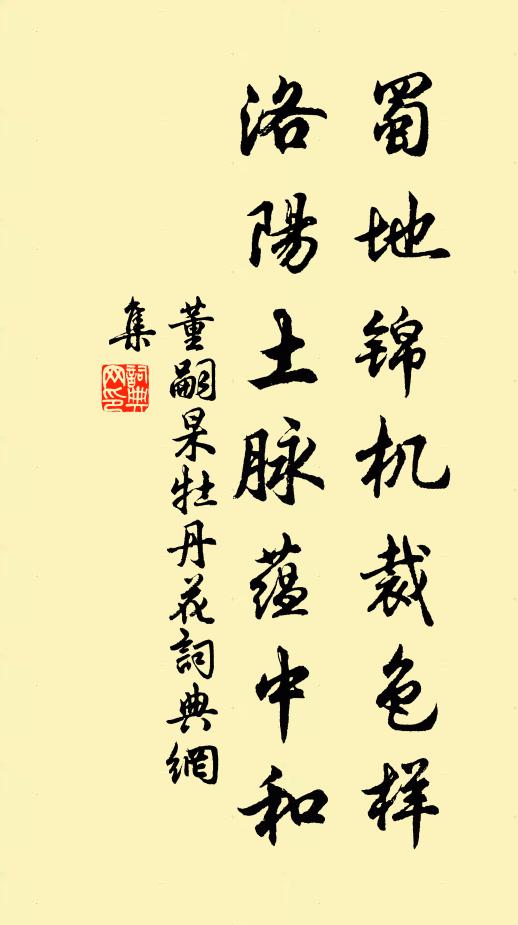 蜀地锦机裁色样
洛陽土脉蕴中和
董嗣杲牡丹花詞典網
集
詞典网印